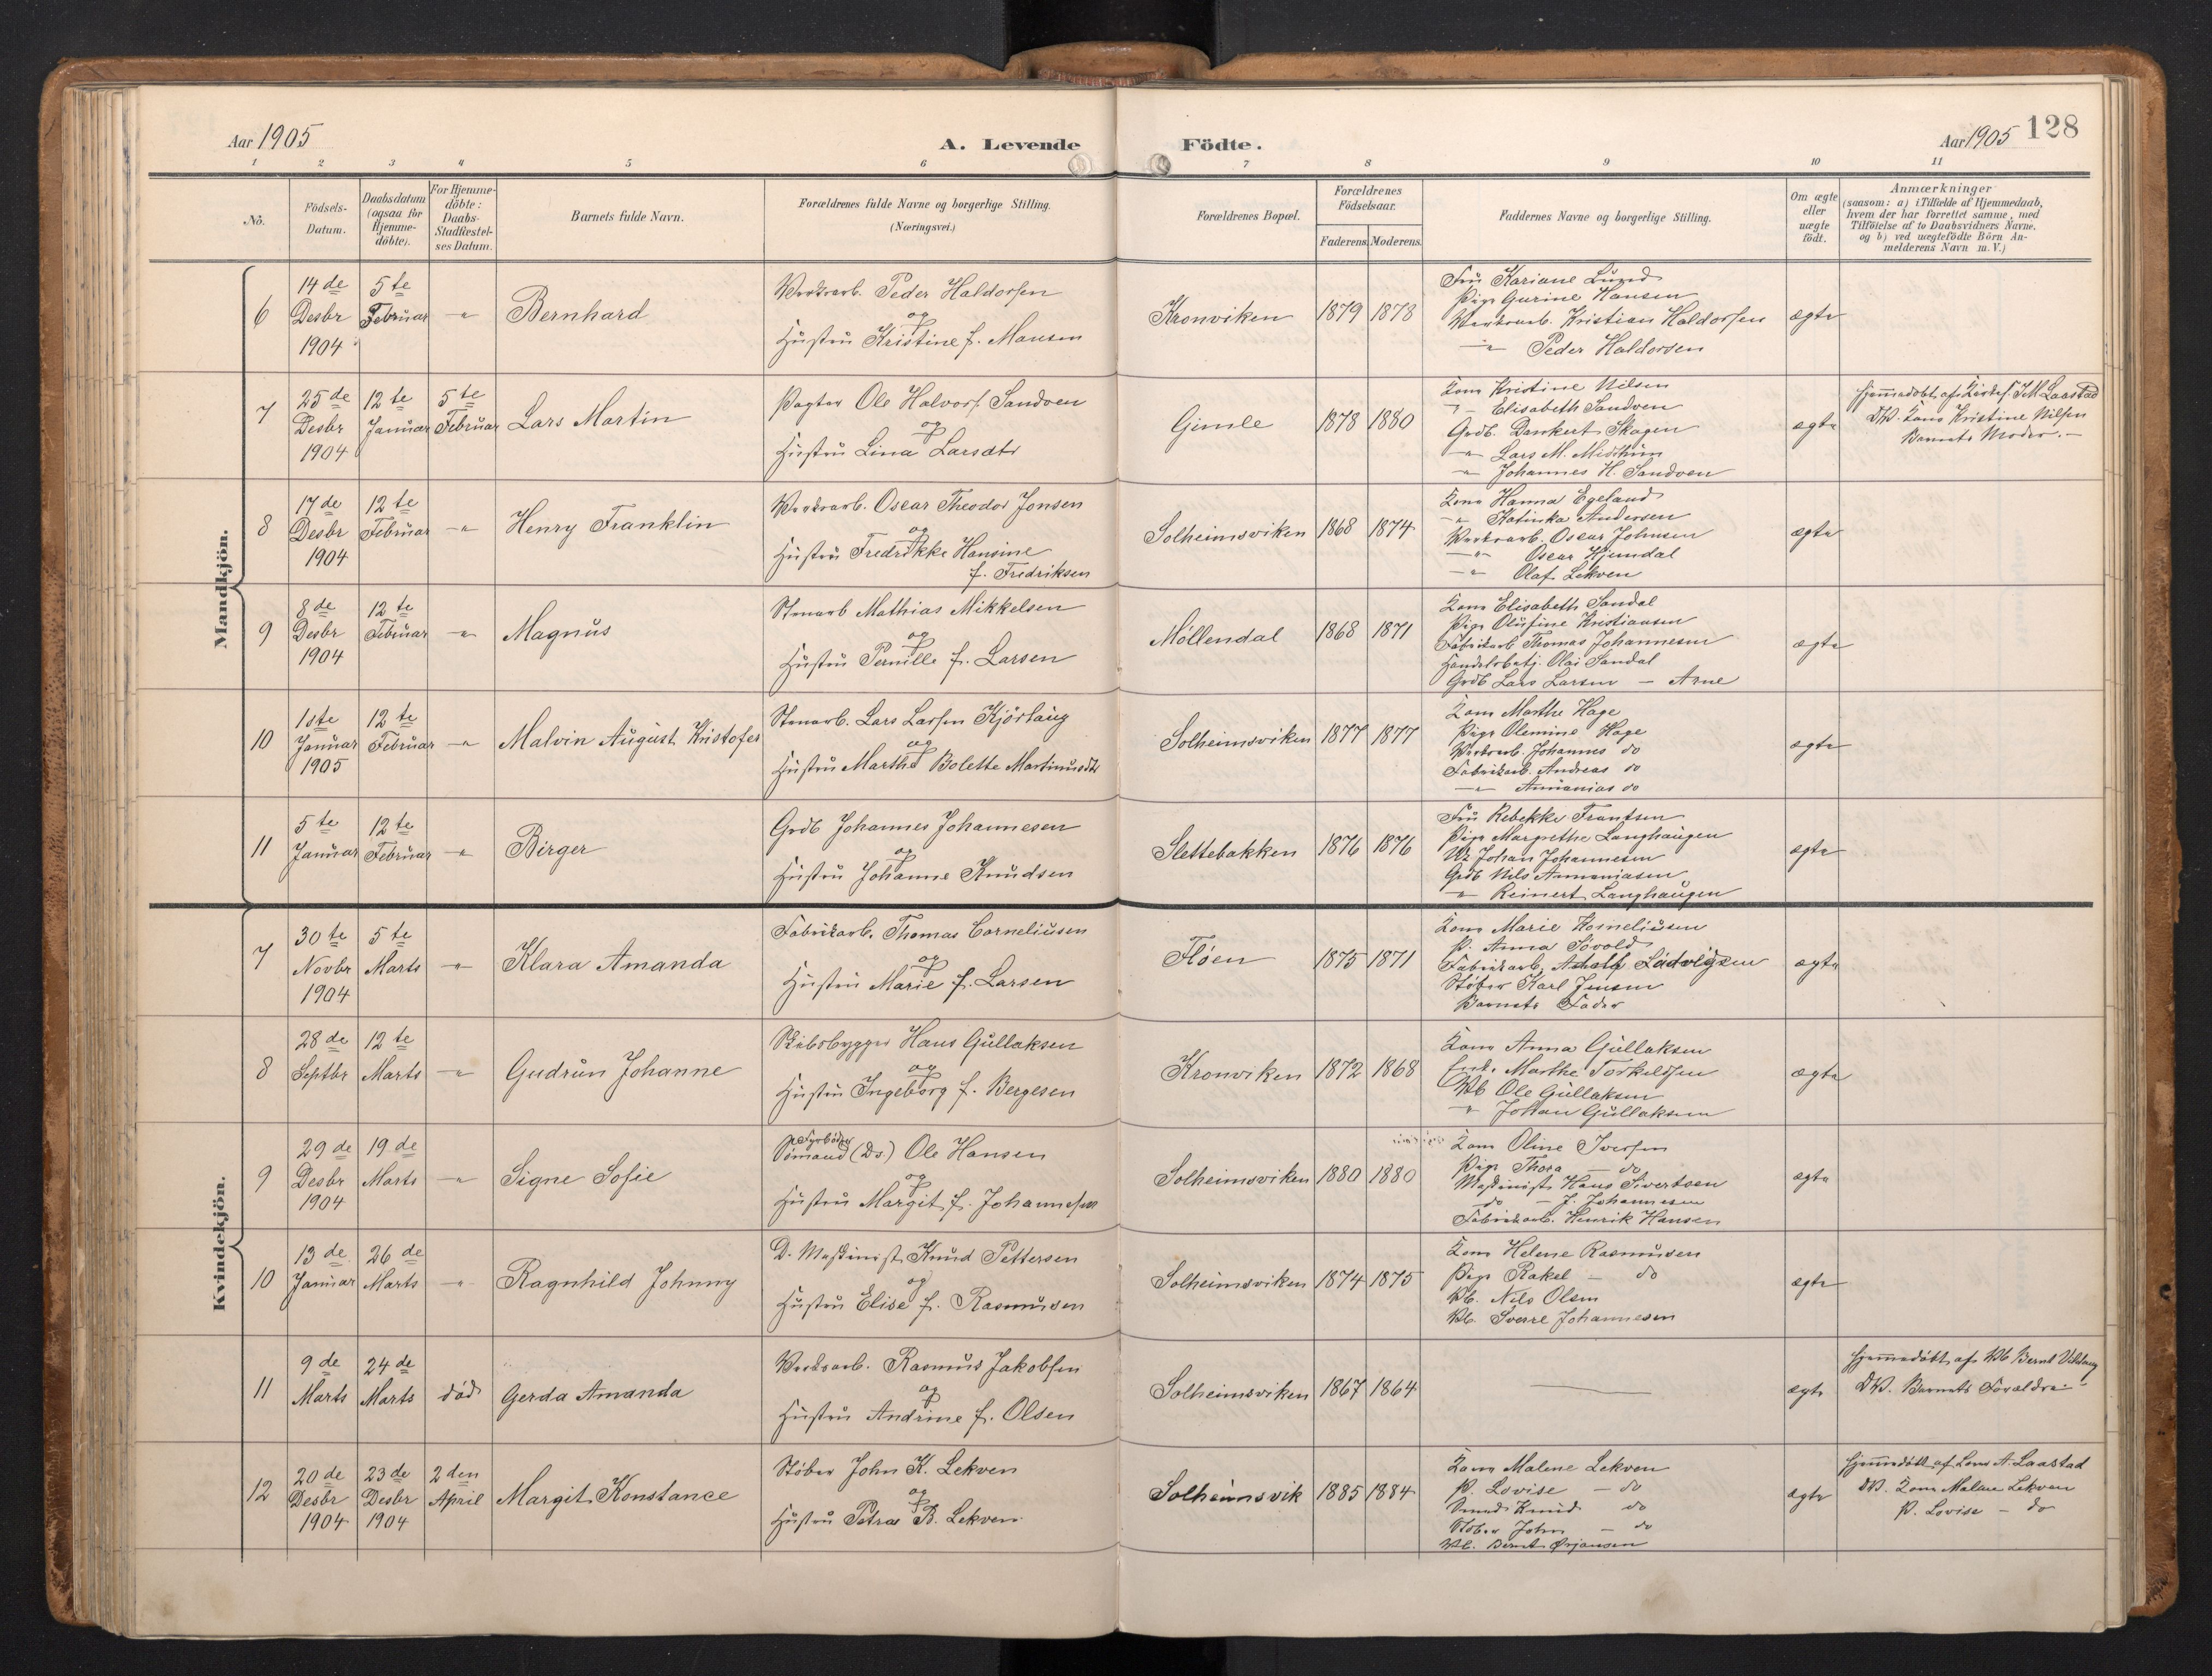 Aar 1905
A. Levende Födte.
Aar 1905 128
1 2 3 4 5 6 7 8 9 10 11
No.
Födsels-Datum.
Daabsdatum (ogsaa for Hjemme-döbte).
For Hjemme-döbte: Daabs-Stadfæstel-ses Datum.
Barnets fulde Navn.
Forældrenes fulde Navne og borgerlige Stilling.
(Næringsvei.)
Forældrenes Bopæl.
Forældrenes Födselsaar.
Faderens. Moderens.
Faddernes Navne og borgerlige Stilling.
Om ægte eller uægte födt.
Anmærkninger
(saasom: a) i Tilfælde af Hjemmedaab,
hvem der har forrettet samme, med
Tilföielse af to Daabsvidners Navne,
og b) ved uægtefödte Börn An-
melderens Navn m. V.)
Mandkjön.
6
14 de Desbr 1904
5 te Februar
-"-
Bernhard
Verksarb. Peder Haldorsen
og
Hustru Kristine f. Monsen
Kronviken
1879 1878
Fru Kariane Lund
Pige Gurine Hansen
Verksarb. Kristian Haldorsen
-"- Peder Haldorsen
ægte
7
25 de Desbr 1904
12 te Januar
5 te Februar
Lars Martin
Pagter Ole Halvors. Sandven
og
Hustru Lina Larsdtr
Gimle
1878 1880
Kone Kristine Nilsen
-"- Elisabeth Sandven
Grdb. Dankert Skagen
-"- Lars M.
-"- Johannes H. Sandven
ægte
Hjemmedöbt af J M Laastad
DV. Kone Kristine Nilsen
Barnets Moder. -
8
17 de Desbr 1904
12 te Februar
-"-
Henry Franklin
Verksarb. Oscar Theodor Jonsen
og
Hustru Fredrikke Hansine
f. Fredriksen
Solheimsviken
1868 1874
Kone Hanna Egeland
-"- Katinka Andersen
Verksarb. Oscar Johnsen
-"- Oscar Hjemdal
-"- Olaf Lekven
ægte
9
8 de Desbr 1904
12 te Februar
-"-
Magnus
Stenarb Mathias Mikkelsen
og
Hustru Pernille f. Larsen
Møllendal
1868 1871
Kone Elisabeth Sandal
Pige Olufine Kristiansen
Fabrikarb Thomas Johannesen
Handelsbetj. Olai Sandal
Grdb Lars Larsen - Arne
ægte
10
1ste Januar 1905
12 te Februar
-"-
Malvin August Kristofer
Stenarb. Lars Larsen Kjørlaug
og
Hustru Marthe Bolette Martinusdtr
Solheimsviken
1877 1877
Kone Marthe Hage
Pige Olemine Hage
Verksarb. Johannes do
Fabrikarb. Andreas do
-"- Annanias do
ægte
11
5 te Januar
12 te Februar
-"-
Birger
Grdb Johannes Johannesen
og
Hustru Johanne Knudsen
Slettebakken
1876 1876
Fru Rebekke Frantsen
Pige Margrethe Langhaugen
Johan Johannesen
Grdb Nils Annaniasen
-"- Reinert Langhaugen
ægte
Kvindekjön.
7
30 te Novbr 1904
5 te Marts
-"-
Klara Amanda
Fabrikarb. Thomas Corneliusen
og
Hustru Marie f. Larsen
Fløen
1875 1871
Kone Marie Korneliusen
P. Anna Søvold
Fabrikarb. Adolf Ludvigsen
Støber Karl Jensen
Barnets Fader
ægte
8
28 de Septbr
12 te Marts
-"-
Gudrun Johanne
Skibsbygger Hans Gullaksen
og
Hustru Ingeborg f. Bergesen
Kronviken
1872 1868
Kone Anna Gullaksen
Enke Marthe Torkildsen
Vb Ole Gullaksen
-"- Johan Gullaksen
ægte
9
29 de Desbr 1904
19 de Marts
-"-
Signe Sofie
Fyrbøder
Sømand (Ds) Ole Hansen
og
Hustru Margit f. Johannesen
Solheimsviken
1880 1880
Kone Oline Iversen
Pige Thora - do
Maskinist Hans Sivertsen
do - J. Johannesen
Fabrikarb. Henrik Hansen
ægte
10
13 de Januar
26 de Marts
-"-
Ragnhild Johnny
D. Maskinist Knud Pettersen
og
Hustru Elise f. Rasmusen
Solheimsviken
1874 1875
Kone Helene Rasmusen
Pige Rakel - do
Vb. Nils Olsen
Vb. Sverre Johannesen
ægte
11
9 de Marts
24 de Marts
død
Gerda Amanda
Verksarb. Rasmus Jakobsen
og
Hustru Andrine f. Olsen
Solheimsviken
1867 1864
ægte
Hjemmedöbt af Vb Bernt
DV. Barnets Forældre -
12
20 de Desbr 1904
23 de Desbr 1904
2 den April
Margit Konstance
Støber John K. Lekven
og
Hustru Petra B. Lekven
Solheimsvik
1885 1884
Kone Malene Lekven
P. Lovise - do
Smed Knud do
Støber John - do
Vb. Bernt Ørjansen
ægte
Hjemmedöbt af A. Laastad
DV. Kone Malene Lekven
P. Lovise - do